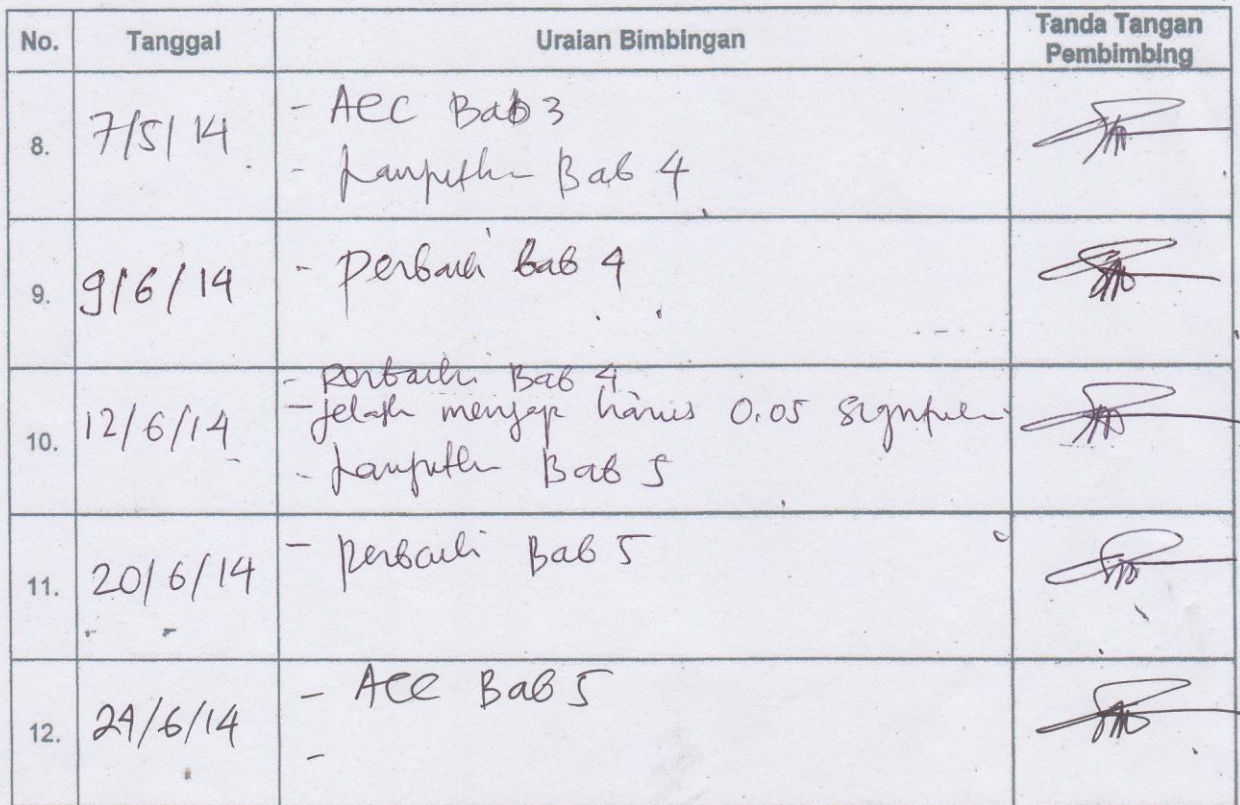 No. Tanggal Uraian Bimbingan Tanda Tangan Pembimbing
8. 7/5/14 - Acc Bab 3
- Lanjutkan Bab 4
9. 9/6/14 - Perbaiki Bab 4
10. 12/6/14 - Perbaiki Bab 4
- Jelaskan mengapa harus 0.05 signifikan
- Lanjutkan Bab 5
11. 20/6/14 - Perbaiki Bab 5
12. 24/6/14 - Acc Bab 5
-